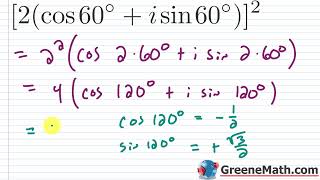 [2(cos 60° + i sin 60°)]²
= 2²(cos 2·60° + i sin 2·60°)
= 4(cos 120° + i sin 120°)
cos 120° = -1/2
=
sin 120° = + √3/2
GreeneMath.com